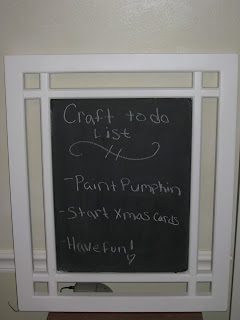 Craft to do
List
-Paint Pumpkin
-Start Xmas Cards
-Have fun!